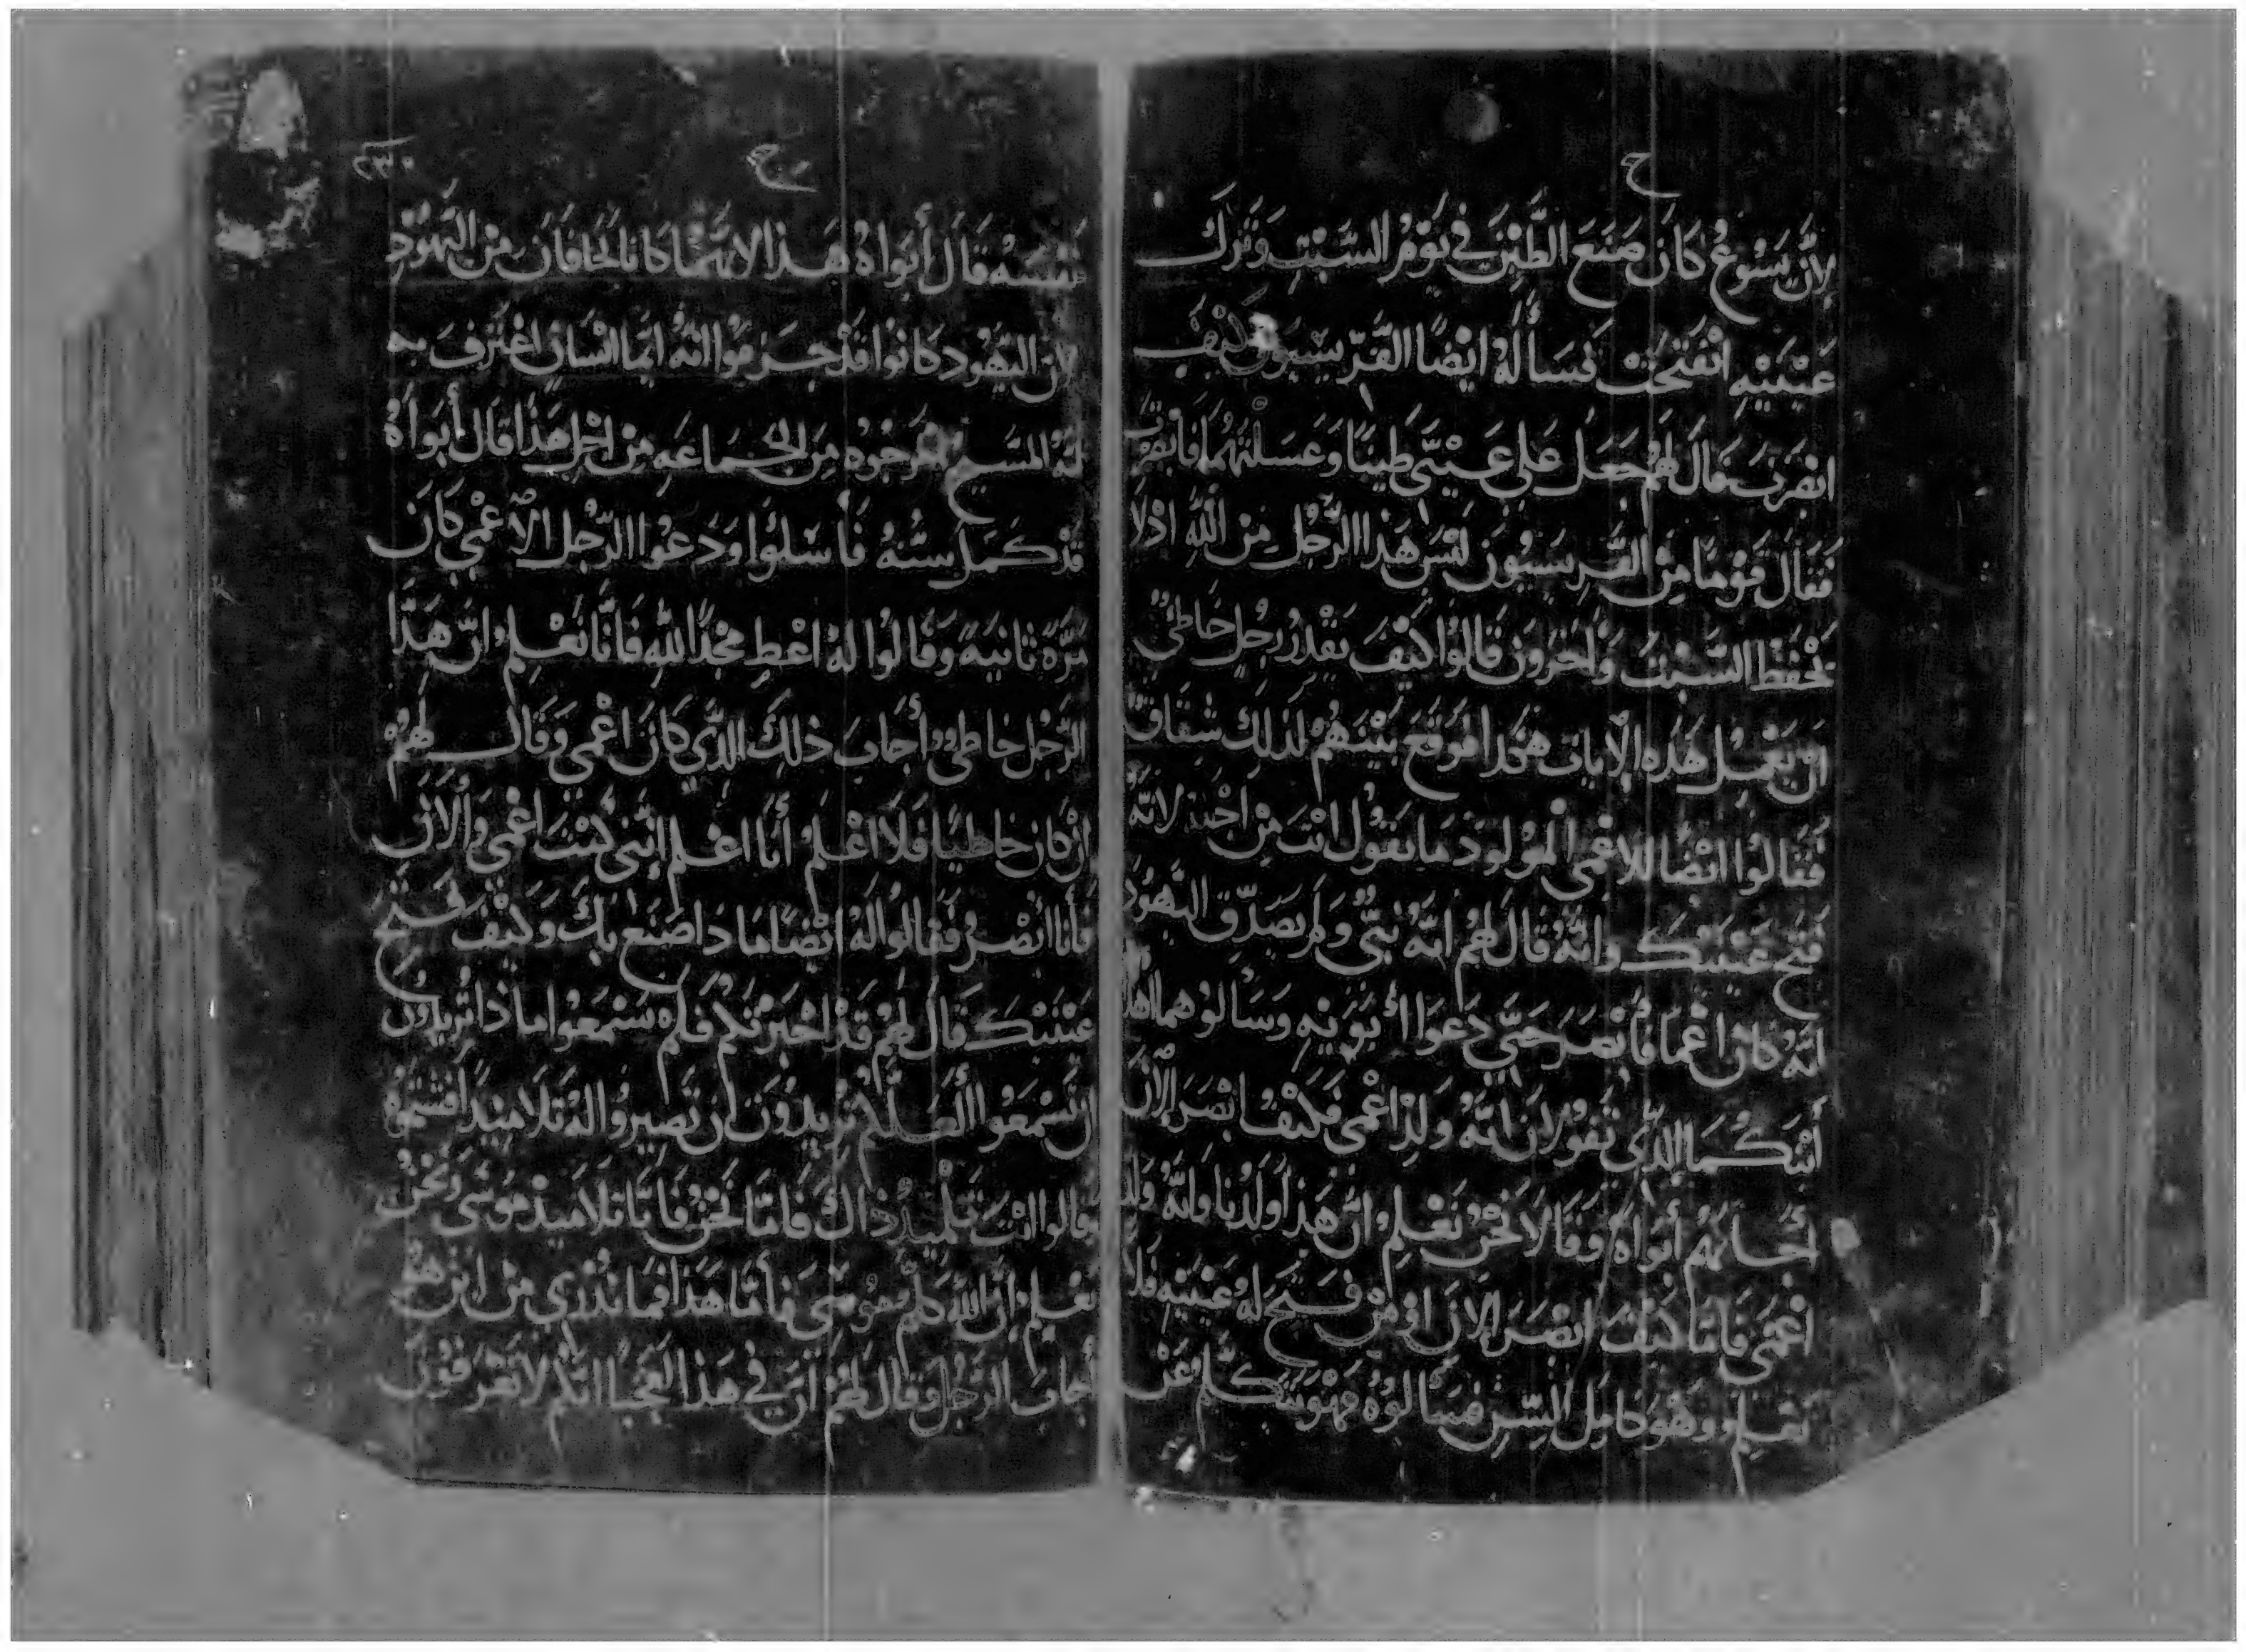 ح
لِأَنَّ يَسُوعُ كَانَ صَنَعَ الطِّيْنَ فِي يَوْمِ السَّبْتِ وَتَرَكَ
عَيْنَيْهِ انْفَتَحَتْ فَسَأَلُهُ ايْضًا الفَرِّيسِيُونَ كَيْفَ
ابْصَرْتَ فَقَالَ لَهُم جَعَلَ عَلى عَيْنَيَّ طِينًا وَغَسَلْتُهُمَا فَابْصَرْتُ
فَقَالَ قَوْمًا مِنَ الفَرِيسِيُونَ لَيْسَ هَذَا الرَّجُل مِنَ اللَّهِ اذْ لَا
يَحْفَظ السَّبْتَ وَآخَرُونَ قَالُوا كَيْفَ يَقْدِرُ رَجُلٍ خَاطِئٍ
انْ يَعْمِل هَذِهِ الآيات هَكَذا فَوَقَعَ بَيْنَهُمْ لذَلِكَ شِقَاقٌ
فَقَالوُا ايْضًا لِلاعْمَى المَوْلُودَ مَا تَقُول انْتَ مِنْ اجْلِ لانَّهُ
فَتَحَ عَيْنَيْكَ وانَّهُ قَالَ لَهُم انَّهُ نَبِيٌّ وَلَمْ يصَدِّق اليَهُود
انَّهُ كَانَ اعْمَا فَأَبْصَرَ حَتَّى دَعَوَا أَبَوَيْهِ وَسَأَلُوهُمَا اهَذا
أَبْنَكُمَا الَّذِي تَقُولَانَ انَّهُ وَلِدَ اعْمَى فَكَيْفَ ابْصَرَ الآنَ
أَجَابَهُم أَبَوَاهُ وَقَالَا نَحْنُ نَعْلَم انَّ هَذَا وَلَدُنَا وَانَّهُ وَلِدَ
اعْمَى فَامَّا كَيْفَ ابْصَرَ الآنَ اوْ مَنْ فَتَحَ لَهُ عَيْنَيْهِ فَلَا
نَعْلَم وَهُوَ كَامِل السِّنِ فَسَأَلُوهُ فَهْوَ يَتَكَلَّمُ عَنْ
ح
٢٣٠
نَفْسَهِ قَالَ أَبَوَاهُ هَذَا لانَّهُمَا كَانَا يَخَافَانِ مِنَ اليَهُودِ
لان اليَهُود كَانُوا قَدْ جَزَمُوا انَّهُ ايّمَا انْسَانٍ اعْتَرَفَ بِهِ
انَّهُ المَسِيح اخْرَجُوهُ مِنَ الجَمَاعَهِ مِنْ اجْلِ هَذَا قَالَ أَبَوَاهُ
قَدْ كَمَلَ سِنُّهُ فَأسَلُوا وَدَعَوْا الرَّجُل الاعْمَى كَانَ
مَرَّةً ثَانِيَةً وَقَالُوا لَهُ اعْطِ مَجْدًا للهِ فَانَّا نَعْلَم انَّ هَذَا
الرَّجُل خاطِئ أَجَابَ ذَلِكَ الذِّي كَانَ اعْمَى وَقَالَ لَهُمْ
انْ كَانَ خَاطِيًا فَلَا اعْلَمُ أَنَا اعْلَم انَّنِي كُنْتَ اعْمَى وَالآنَ
فَأَنَا ابْصِرُ فَقَالُوا لَهُ ايْضًا مَا ذَا صَنَعَ بِكَ وَكَيْفَ فَتَحَ
عَيْنَيْكَ قَالَ لَهُمْ قَدْ اخْبَرْتَكُمْ فَلَم تَسْمَعُوا مَاذَا تُرِيدُونَ
ان تَسْمَعُوا العَلَّكُمْ تُرِيدُونَ انْ تَصِيرُوا لَهُ تَلَامِيذًا فَشَتَمُوهُ
وقَالُوا انْتَ تَلْمِيذُ ذَاكَ فَامَّا نَحْنُ فَانَّا تَلَامِيذ مُوسَى وَنَحْنُ
نَعْلَم انَّ اللهَ كَلَّمَ مُوسَى فَأَمَّا هَذَا فَمَا نَدْرِي مِنْ ايْنَ هُوَ
أَجَابَ الرَّجُل وَقَالَ لَهُمْ انَّ فِي هَذَا لعَجَبًا انَّكُمْ لَا تَعْرَفُونَ